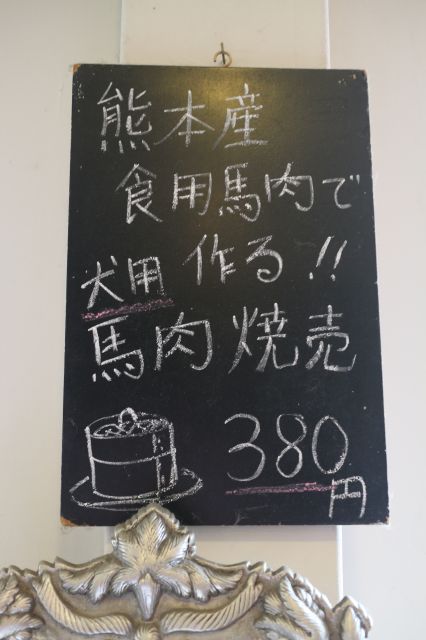 熊本産
食用馬肉で
作る!!
犬用
馬肉焼売
380
円